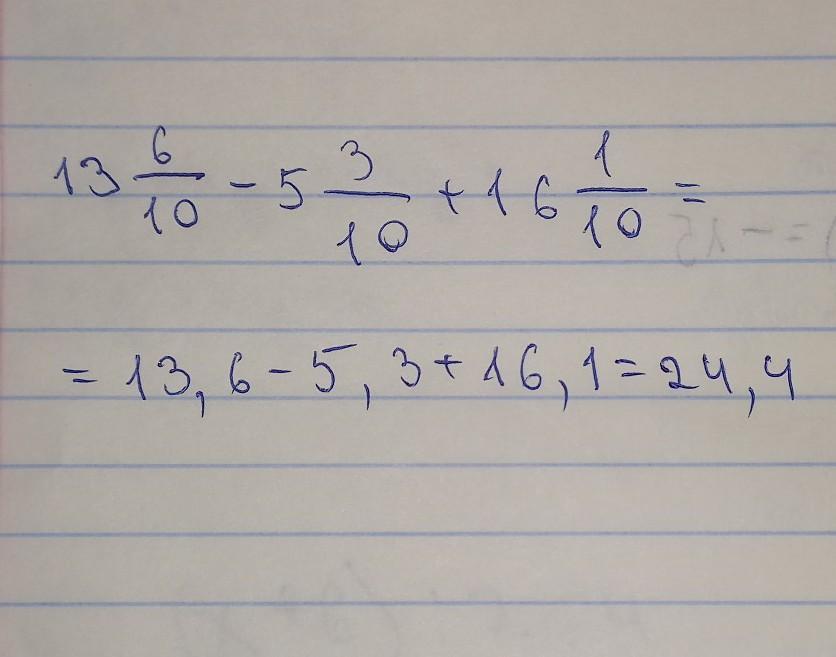 13 6/10 - 5 3/10 + 16 1/10 =
= 13,6 - 5,3 + 16,1 = 24,4